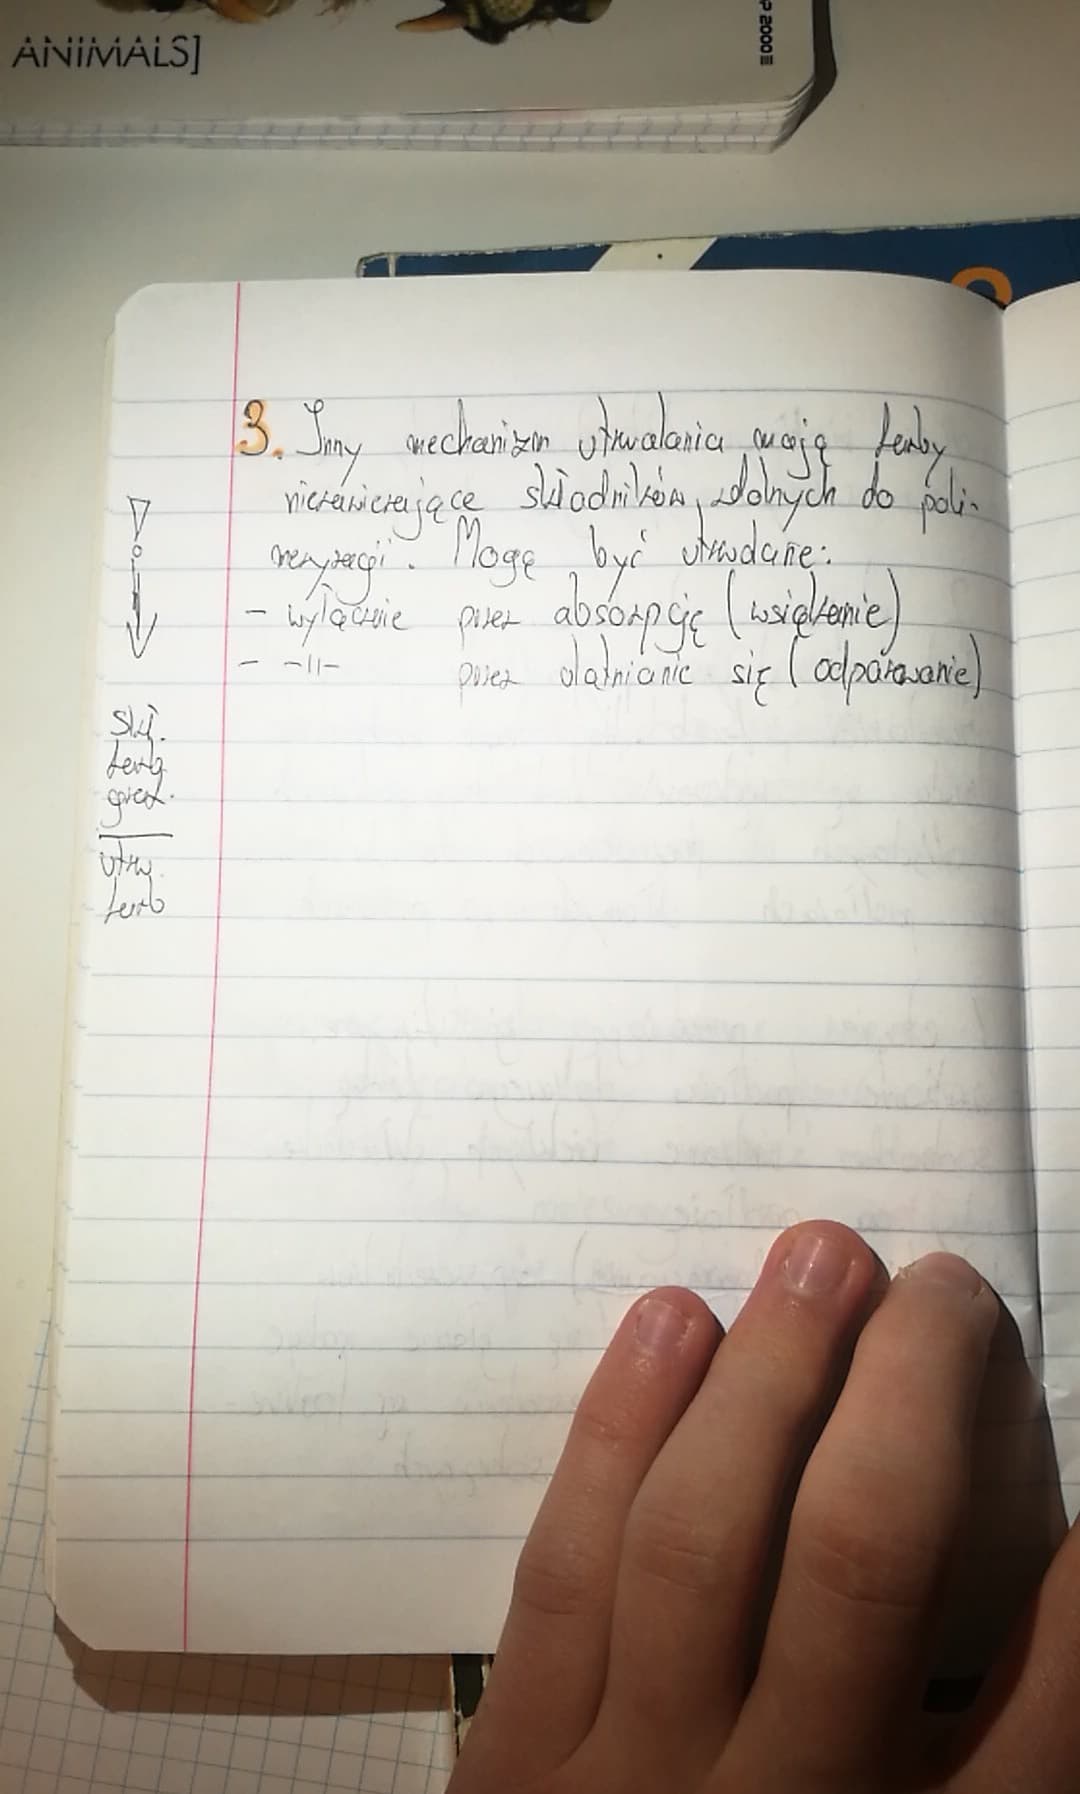 ANIMALS]
P 2000
3. Inny mechanizm utrwalania mają farby
niezawierające składników, zdolnych do poli-
meryzacji. Mogę być utrwalane:
- wyłącznie przez absorpcję (wsiąkanie)
- -||- przez ulatnianie się (odparowanie)
skł.
farb
graf.
utrw.
farb